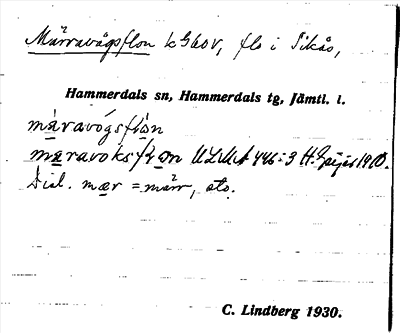 Märravågsflon k 960 v, flo i Sikås,
Hammerdals sn, Hammerdals tg, Jämtl. l.
máravógsflòn
maravoksflon ULMA 446:3 H. Geijer 1910.
Dial. mær = märr, sto.
C. Lindberg 1930.